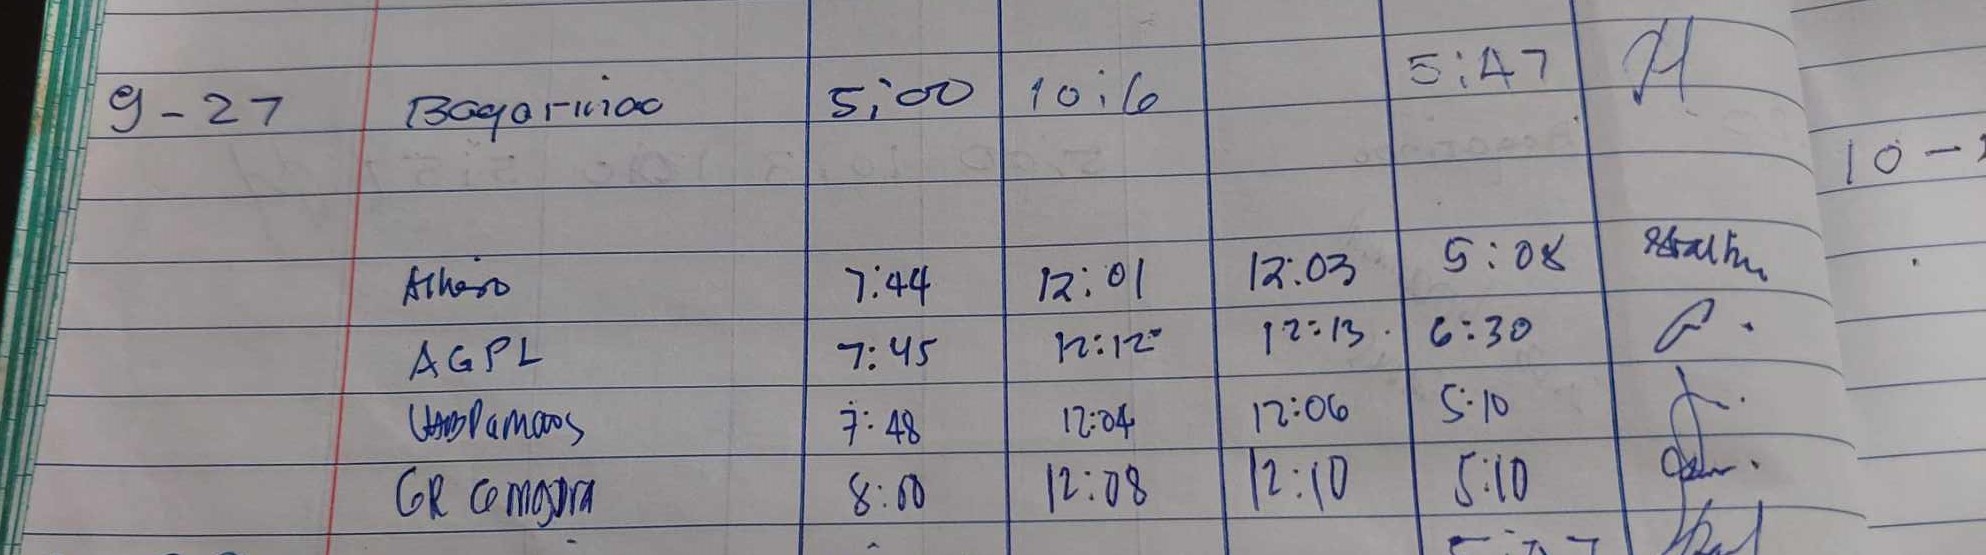 9-27 Bagarinao 5:00 10:16 5:47
10-
7:44 12:01 12:03 5:08
AGPL 7:45 12:12 12:13 6:30
7:48 12:04 12:06 5:10
GR 8:00 12:08 12:10 5:10